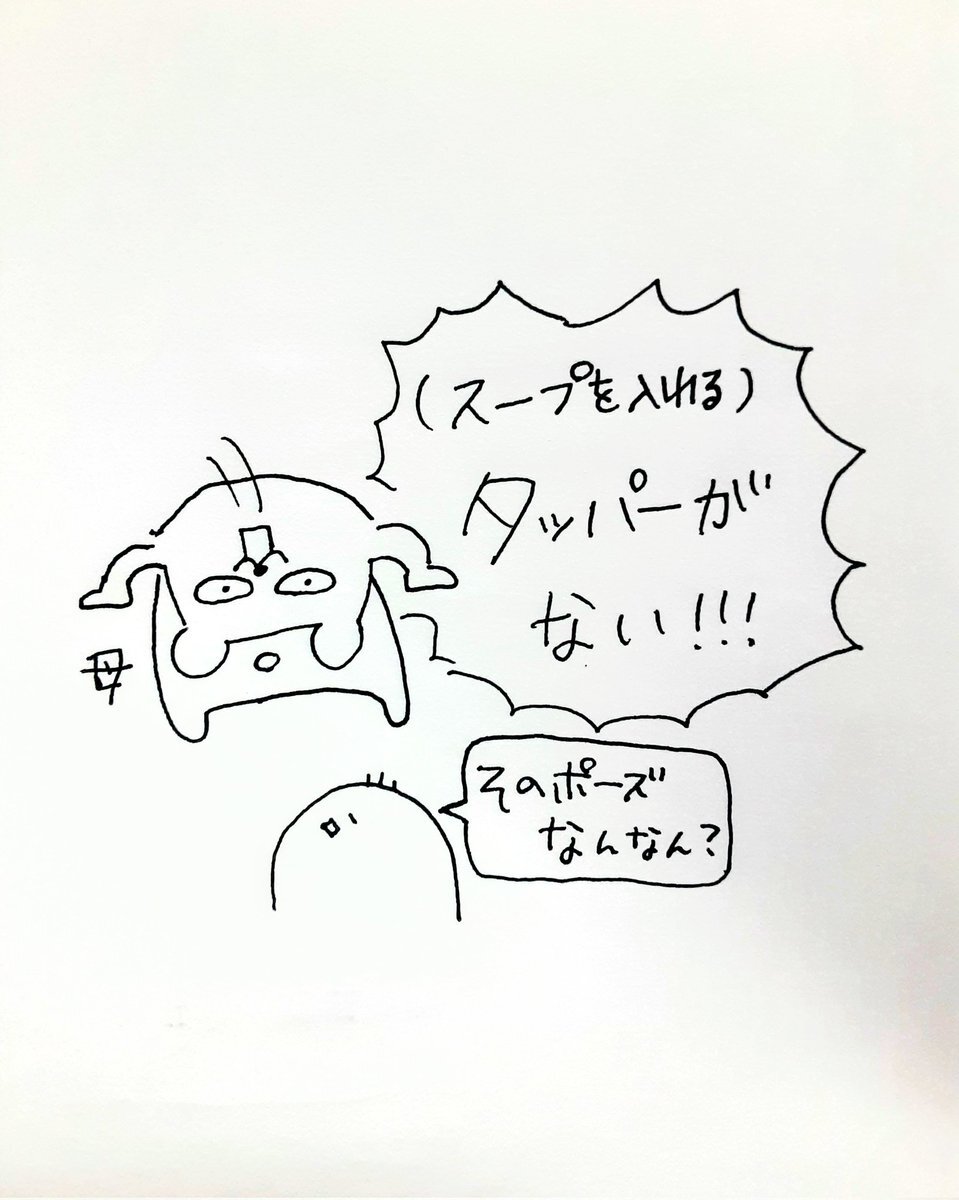 (スープを入れる)
タッパーが
ない!!!
母
そのポーズ
なんなん?